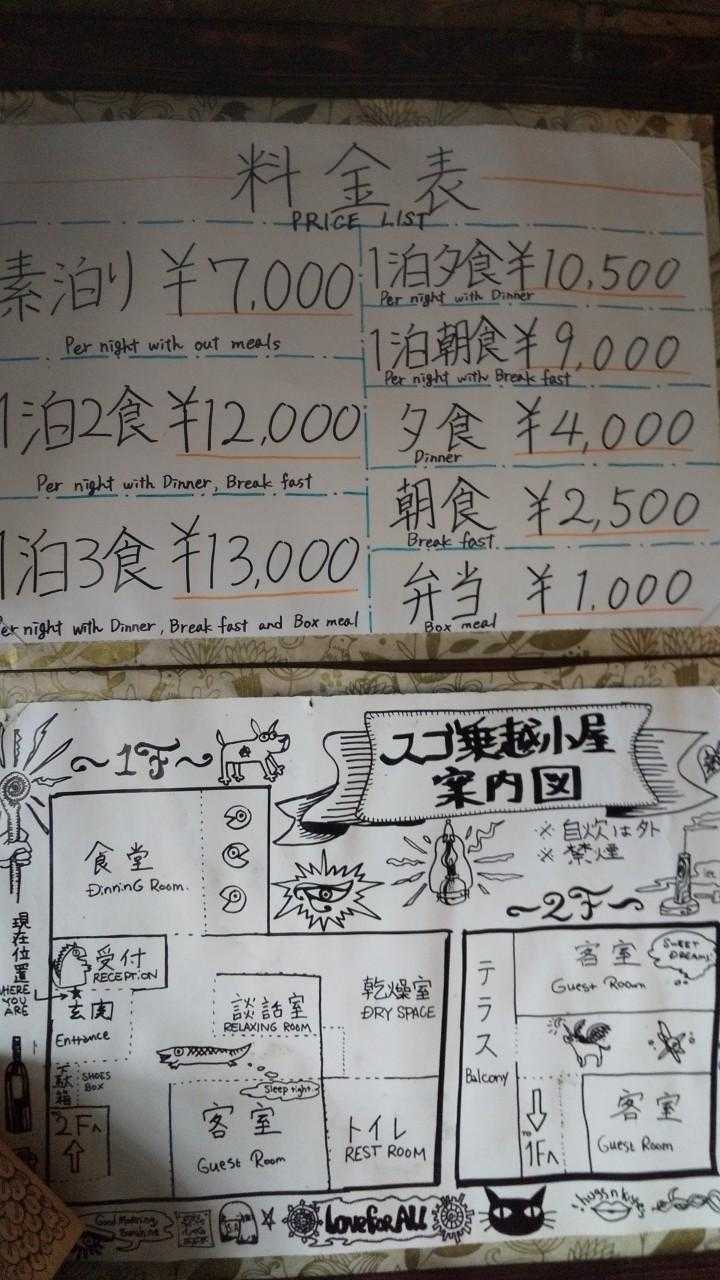 料金表
PRICE LIST
素泊り ¥7,000
Per night with out meals
1泊2食 ¥12,000
Per night with Dinner, Break fast
1泊3食 ¥13,000
Per night with Dinner, Break fast and Box meal
1泊夕食 ¥10,500
Per night with Dinner
1泊朝食 ¥9,000
Per night with Break fast
夕食 ¥4,000
Dinner
朝食 ¥2,500
Break fast
弁当 ¥1,000
Box meal
スゴ乗越小屋
案内図
~1F~
※自炊は外
※禁煙
食堂
DinninG Room.
現在位置
HERE
YOU
ARE
受付
RECEPTiON
玄関
Entrance
下駄箱
SHOES
BOX
2Fへ
談話室
RELAXING ROOM
乾燥室
DRY SPACE
Sleep tight
客室
Guest Room
トイレ
REST ROOM
~2F~
テラス
Balcony
客室
Guest Room
SWEET
DREAMS
TO
1Fへ
客室
Guest Room
Good Morning
Sunshine
Love for ALL
hugs n kiss